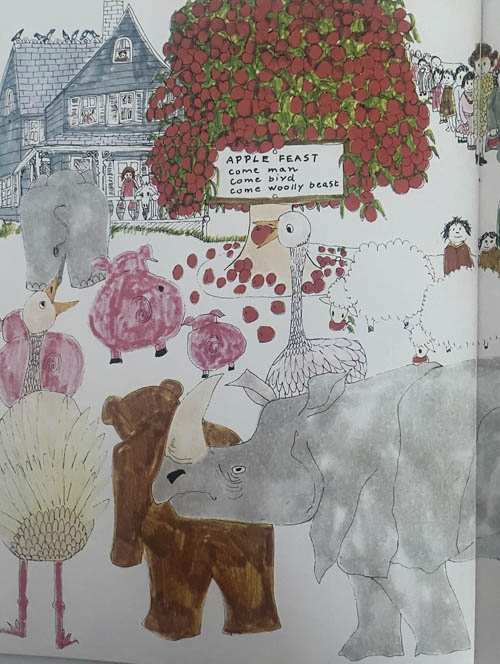 APPLE FEAST
come man
come bird
come woolly beast